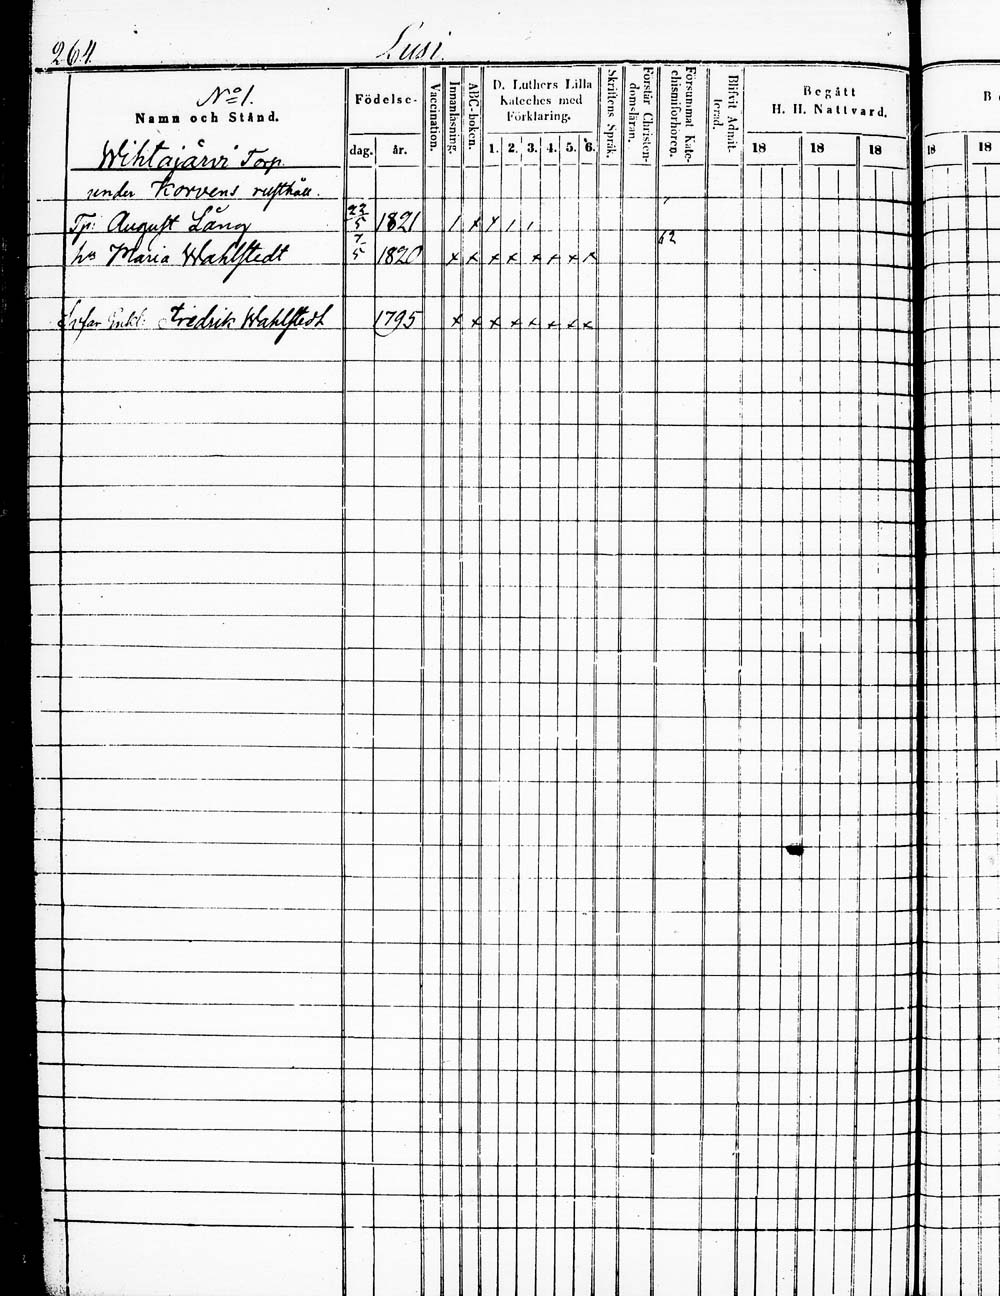 264.
Lusi.
No 1.
Namn och Stånd.
Födelse-
dag. år.
Vaccination.
Innanläsning.
ABC-boken.
D. Luthers Lilla
Kateches med
Förklaring.
1. 2. 3. 4. 5. 6.
Skriftens Språk.
Förstår Christen-
domsläran.
Försummat Kate-
chismiförhören.
Blifvit Admit-
terad.
Begått
H. H. Nattvard.
18 18 18
18 18
Wihtajärvi Torp.
under Korvens rusthåll.
Tp: August Lång 23/5 1821 / x x / /
62
hu Maria Wahlstedt 7/5 1820 x x x x x x x x
Svfar Enkl: Fredrik Wahlstedt 1795 x x x x x x x x